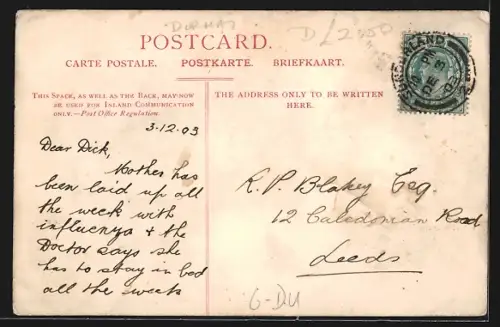 DURHAM
D/2450
POSTCARD.
CARTE POSTALE. POSTKARTE. BRIEFKAART.
THIS SPACE, AS WELL AS THE BACK, MAY NOW
BE USED FOR INLAND COMMUNICATION
ONLY.—Post Office Regulation.
THE ADDRESS ONLY TO BE WRITTEN
HERE.
SUNDERLAND
DE 3
03
3.12.03
Dear Dick,
Mother has
been laid up all
the week with
influenza & the
Doctor says she
has to stay in bed
all the week
R. P. Blakey Esq.
12 Caledonian Road
Leeds
6-DU